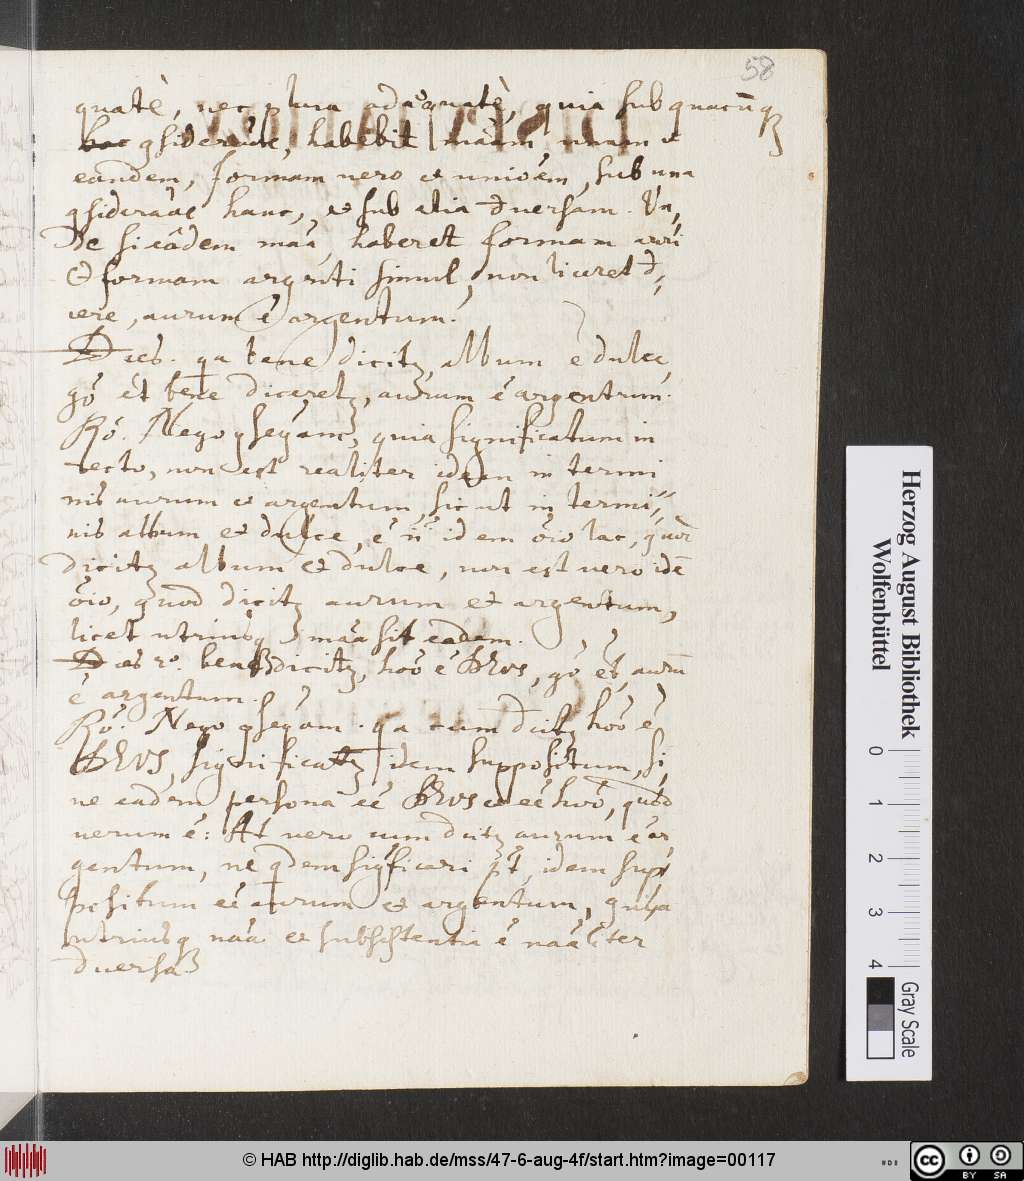 58
quatè, nec plura adæquatè, quia sub quacūq
hac gsideraōe, habebit māam unam et
eandem, formam vero et unioēm, sub una
gsideraōe hanc, et sub alia dversam. Un,
de si eâdem māa, haberet formam auri
et formam argenti simul, non liceret d,,
icere, aurum ē argentum.
Dices. qa bene dicitr, album ē dulce,
gô et bene diceretr, aurum ē argentum.
Rô. Nego gseq̄am, quia significatum in
recto, non est realiter idem in termi
nis aurum et argentum, sicut in termi,,
nis album et dulce, ē n̄ idem ōio lac, quod
dicitr album et dulce, non est vero idē
ōio, quod dicitr aurum et argentum,
licet utriusq māa sit eadem.
Dices 2º. bene dicitr, hoō ē , gô et, aurū
ē argentum.
Rô. Nego gseq̄am. qa cum dcitr hoō ē
 significatr idem suppositum, si,
ne eadem persona eē et eē hoō, quod
verum ē: At vero cum dcitr aurum ē ar,
gentum, ne qdem sigficari pt, idem sup,
positum eē aurum et argentum, quia
utriusq nāa et subsistentia ē nāaliter
dversa
Herzog August Bibliothek
Wolfenbüttel
0
1
2
3
4
Gray Scale
© HAB http://diglib.hab.de/mss/47-6-aug-4f/start.htm?image=00117
cc
BY SA